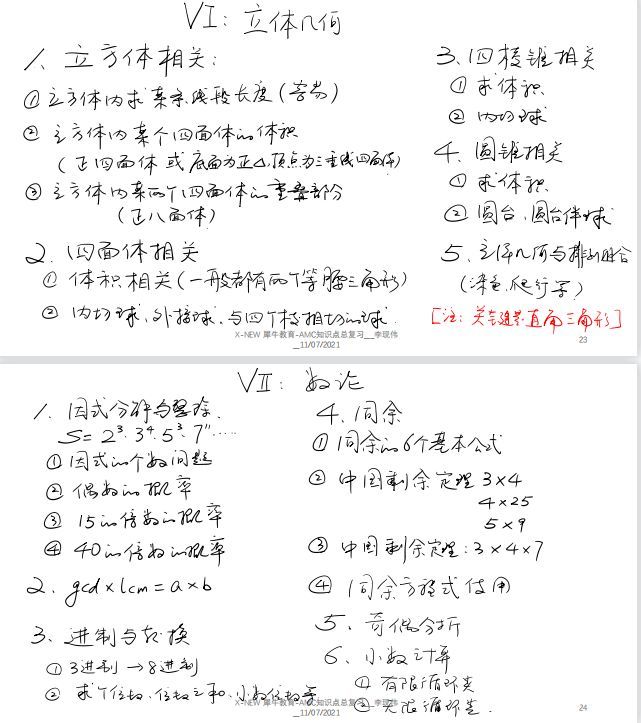 VI: 立体几何
1. 立方体相关:
① 立方体内求某条线段长度 (容易)
② 立方体内某个四面体的体积
(正四面体 或 底面为正△,顶点为三垂线四面体)
③ 立方体内某两个四面体的重叠部分
(正八面体)
2. 四面体相关
① 体积相关 (一般都有两个等腰三角形)
② 内切球、外接球、与四个棱相切的球.
3. 四棱锥相关
① 求体积
② 内切球
4. 圆锥相关
① 求体积.
② 圆台、圆台伴球
5. 立体几何与排列组合
(染色、爬行等)
[注: 关键是直角三角形]
X-NEW 犀牛教育-AMC知识点总复习__李现伟
__11/07/2021
23
VII: 数论
1. 因式分解与整除.
S = 2³·3⁴·5³·7¹¹·····
① 因式的个数问题
② 偶数的概率
③ 15的倍数的概率
④ 40的倍数的概率
2. gcd × lcm = a × b
3. 进制与转换
① 3进制 → 8进制
② 求个位数、位数之和、小数位数等
4. 同余
① 同余的6个基本公式
② 中国剩余定理 3×4
4×25
5×9
③ 中国剩余定理: 3×4×7
④ 同余方程式使用
5. 奇偶分析
6. 小数计算
① 有限循环类
② 无限循环类.
X-NEW 犀牛教育-AMC知识点总复习__李现伟
__11/07/2021
24